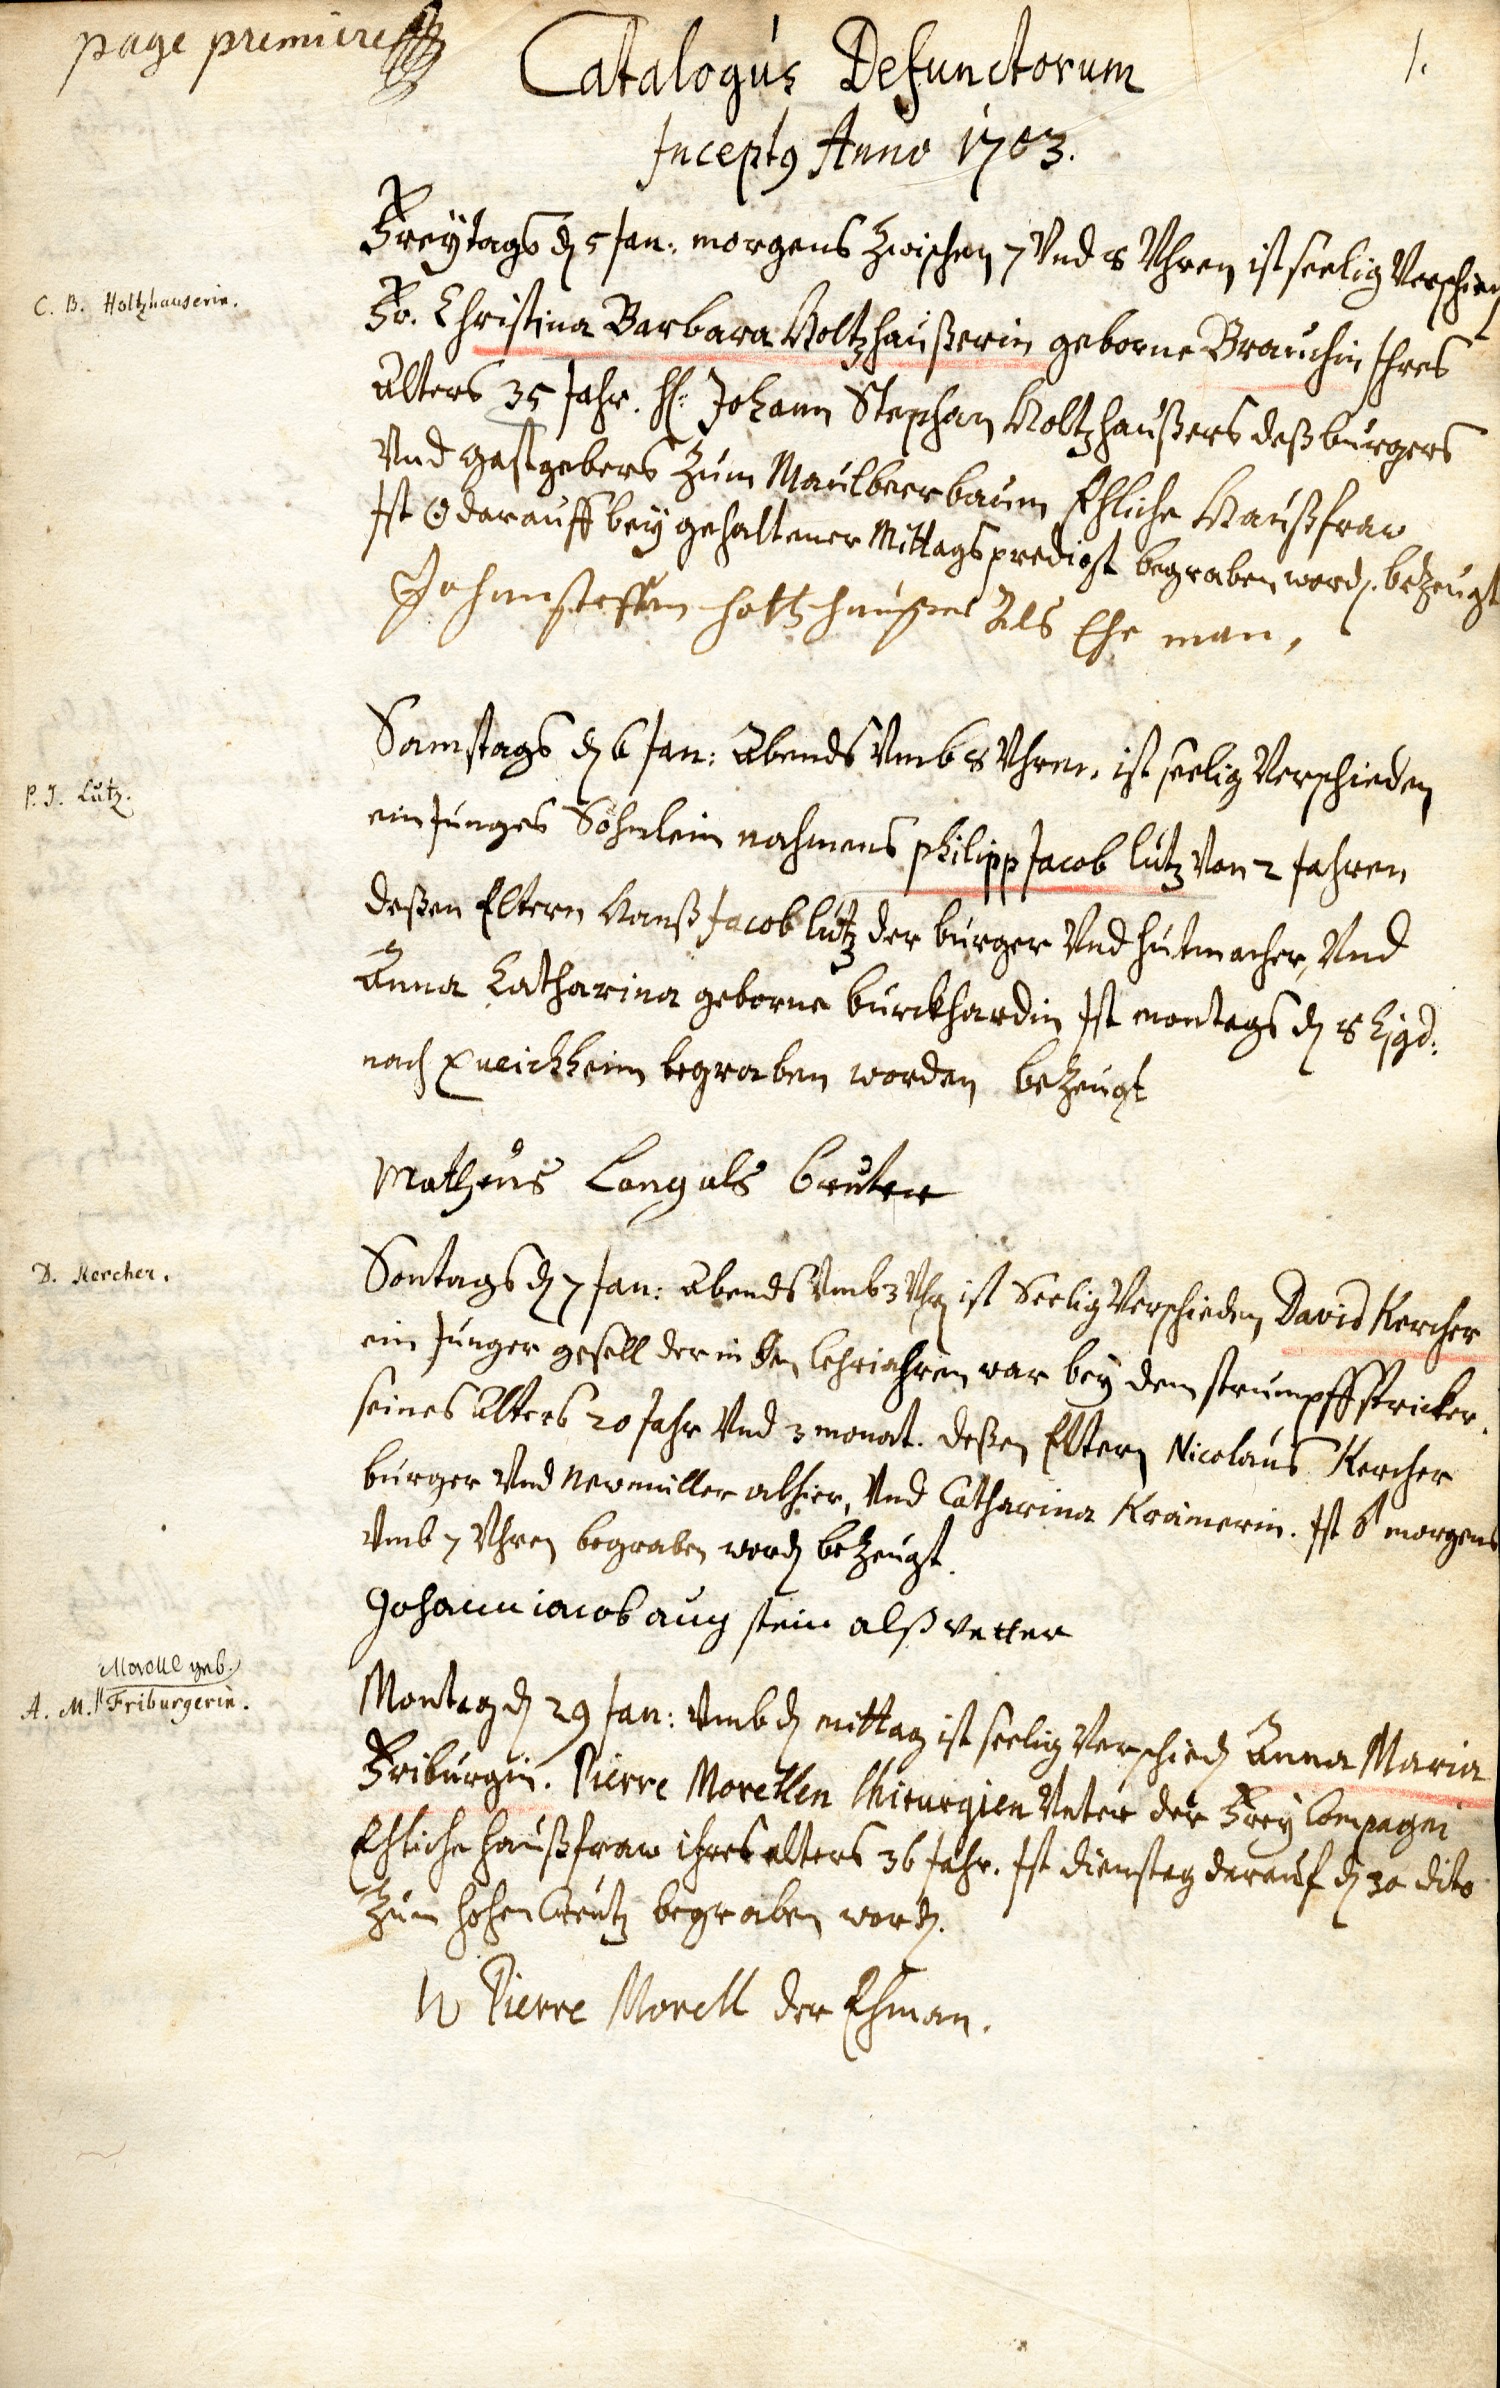 page premiere
1.
Catalogus Defunctorum
Incept9 Anno 1703.
Freÿtags d. 5 Jan: morgens zwischen 7 Vnd 8 Vhren ist seelig Verschieden
C. B. Holtzhauserin.
Fr. Christina Barbara Holtzhaüßerin geborne Brauchin Ihres
Alters 35 Jahr. H: Johann Stephan Holtzhaußers deß burgers
Vnd gastgebers zum Maulbeerbaum Ehliche Haußfraw
Ist ☉ darauff beÿ gehaltener Mittagspredigt begraben word. bezeugt
Johan steffan holtzhausser Als Ehe man,
Samstags d. 6 Jan: Abends Vmb 8 Vhren. ist seelig Verschieden
P. J. Lutz.
ein Junges Söhnlein nahmens philipp Jacob lutz Von 2 Jahren
deßen Eltern Hanß Jacob lutz der burger Vnd hutmacher, Vnd
Anna Catharina geborne burckhardin Ist montags d. 8
nach begraben worden bezeugt
Matheus Lang als
Sontags d. 7 Jan: Abends Vmb 3 Vhr ist Seelig Verschieden David Kercher
D. Kercher.
ein Junger gesell der in den lehrjahren war beÿ dem strumpffstricker.
seines Alters 20 Jahr Vnd 3 monat. deßen Eltern Nicolaus Kercher
burger Vnd Newmüller alhier, Vnd Catharina Kramerin. Ist morgens
Vmb 7 Vhren begraben word. bezeugt.
Johann iacob aug stein alß vetter
Morelle geb.
A. M. Friburgerin.
Montag d. 29 Jan: Vmb d. mittag ist seelig Verschied. Anna Maria
Friburgin. Pierre Morellen Chirurgien Vnter der Freÿ Compagni
Ehliche haußfraw ihres alters 36 Jahr. Ist dienstag darauf d. 30 dito
Zum hohen Creutz begraben word.
Pierre Morell der Ehman.